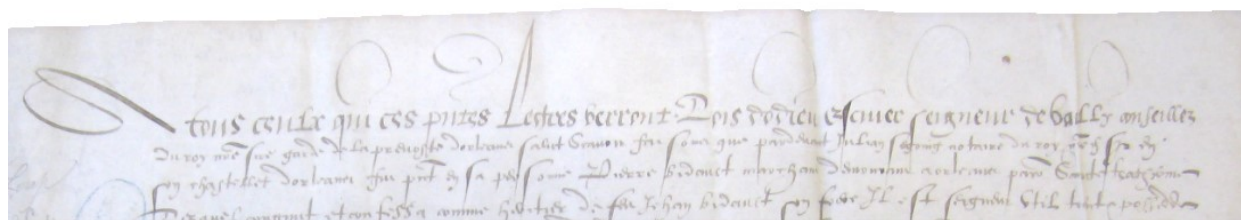 A tous ceulx qui ces pntes Lectres verront Lois dodieu escuier seigneur de Vally conseiller
du roy nre sire garde de la prevoste dorleans salut Scavoir faisons que pardevant Julian notaire du roy nre sr en
son chastellet dorleans fut pnt en sa personne Pierre bidault marchant demourant a orleans paroi Saincte Katherine
Lequel congnut et confessa comme heritier de feu Jehan bidault son frere Il est seigneur Util